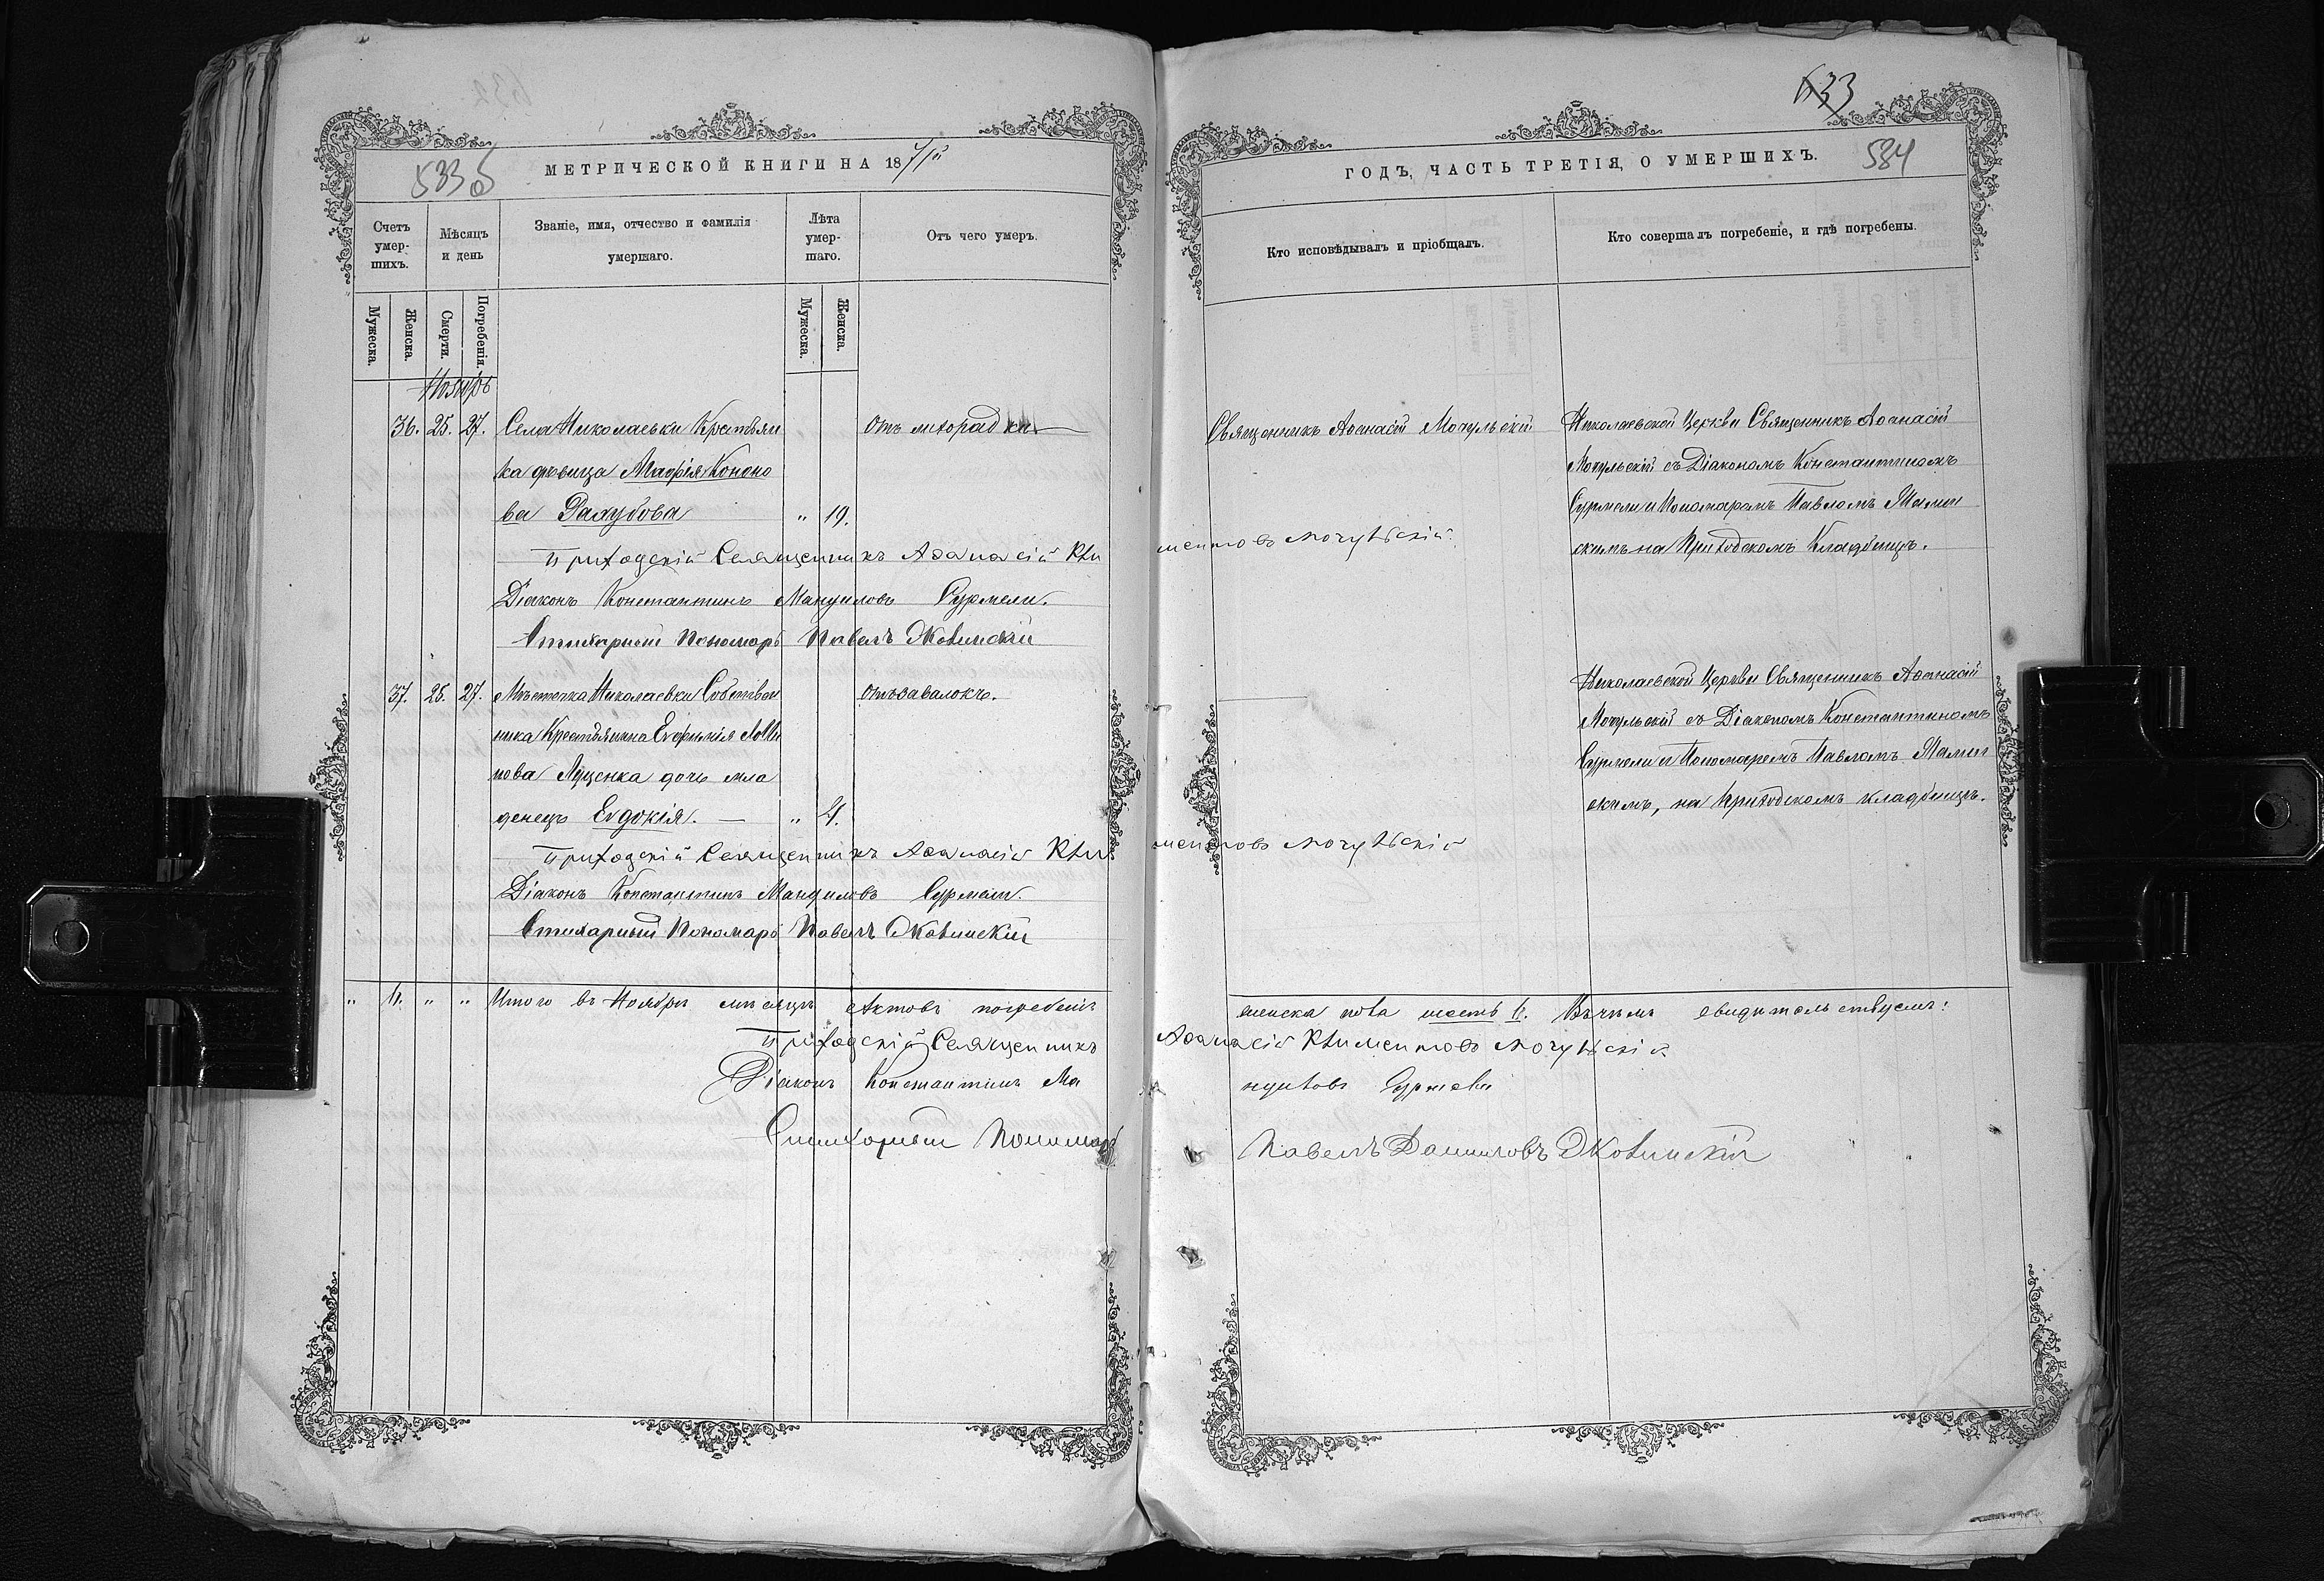 533 об
МЕТРИЧЕСКОЙ КНИГИ НА 18
Счетъ умер-
шихъ.
Мѣсяцъ
и день
Званіе, имя, отчество и фамилія
умершаго.
Лѣта
умер-
шаго.
Отъ чего умеръ.
Мужеска.
Женска.
Смерти.
Погребенія.
Мужеска.
Женска.
Ноябрь
36. 25. 27. Села Николаевки Крестьян
ка дѣвица Марія Кононо
ва " 19.
отъ лихорадки
Приходскій Священникъ Аѳанасій Кли
Діаконъ Константинъ Мануиловъ Сурмели.
Стихарный Пономарь Павелъ
37. 25. 27. Мѣстечка Николаевки Собствен
ника Крестьянина Евфимія
нова Луценка дочь мла
денецъ Евдокія. — " 4.
отъ завалокъ.
Приходскій Священникъ Аѳанасій Кли
Діаконъ Константинъ Мануиловъ Сурмели.
Стихарный Пономарь Павелъ
" 6. " " Итого въ Ноябрѣ мѣсяцѣ Актовъ погребенія
Приходскій Священникъ
Діаконъ Константинъ Ма
Стихарный Пономарь
633
584
ГОДЪ, ЧАСТЬ ТРЕТІЯ, О УМЕРШИХЪ.
Кто исповѣдывалъ и пріобщалъ.
Кто совершалъ погребеніе, и гдѣ погребены.
Священникъ Аѳанасій Могульскій
Николаевской Церкви Священникъ Аѳанасій
Могульскій съ Діакономъ Константиномъ
Сурмели и Пономаремъ Павломъ
скимъ на Приходскомъ Кладбищѣ.
ментовъ Могульскій.
Николаевской Церкви Священникъ Аѳанасій
Могульскій съ Діакономъ Константиномъ
Сурмели и Пономаремъ Павломъ
скимъ, на Приходскомъ кладбищѣ.
ментовъ Могульскій
женска пола шесть 6. Въ чемъ свидѣтельствуемъ:
Аѳанасій Климентовъ Могульскій.
нуиловъ Сурмели
Павелъ Данииловъ